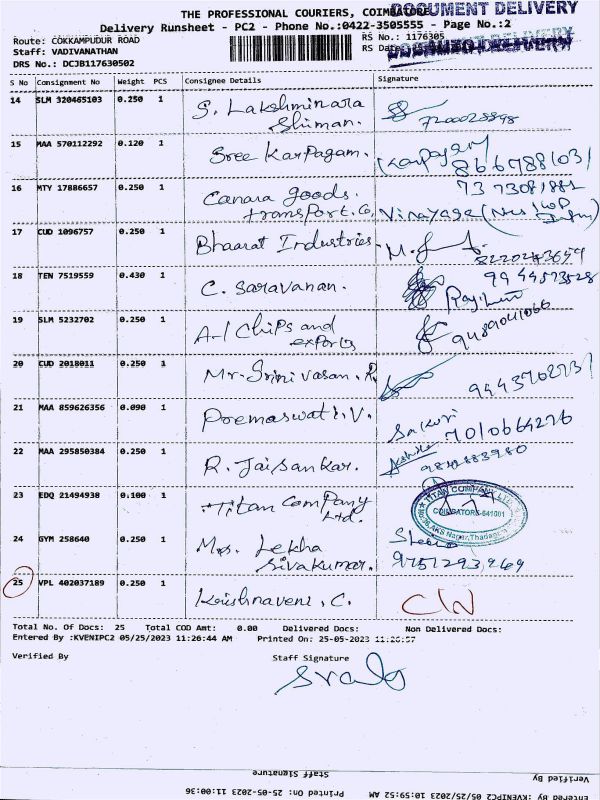 THE PROFESSIONAL COURIERS, COIMBATORE
DOCUMENT DELIVERY
Delivery Runsheet - PC2 - Phone No.:0422-3505555 - Page No.:2
Route: COKKAMPUDUR ROAD
RS No.: 1176305
Staff: VADIVANATHAN
RS Date
DRS No.: DCJB117630502
S No Consignment No Weight PCS Consignee Details Signature
14 SLM 320465103 0.250 1 S. Lakshminara
Shiman.
15 MAA 570112292 0.120 1 Sree Karpagam. Karpagam
8667881031
16 MTY 17886657 0.250 1 Canara goods.
transport. Co, Vinayaga
17 CUD 1096757 0.250 1 Bhaarat Industries.
8220243659
18 TEN 7519559 0.430 1 C. Saravanan. 9944573528
19 SLM 5232702 0.250 1 A-1 Chips and
exports 9489041066
20 CUD 2018011 0.250 1 Mr. Srinivasan. R. 9443702731
21 MAA 859626356 0.090 1 Premaswathi. V. 7010664276
22 MAA 295850384 0.250 1 R. Jaisankar.
23 EDQ 21494938 0.100 1 Titan Company
Ltd.
TITAN COMPANY LTD
COIMBATORE-641001
24 GYM 258640 0.250 1 Mrs. Lekha
Sivakumar. 9751293969
25 VPL 402037189 0.250 1 Krishnaveni. C. C/N
Total No. Of Docs: 25 Total COD Amt: 0.00 Delivered Docs: Non Delivered Docs:
Entered By :KVENIPC2 05/25/2023 11:26:44 AM Printed On: 25-05-2023 11:26:57
Verified By Staff Signature
Staff Signature
Verified By
By :KVENIPC2 05/25/2023 10:59:52 AM Printed On: 25-05-2023 11:00:36